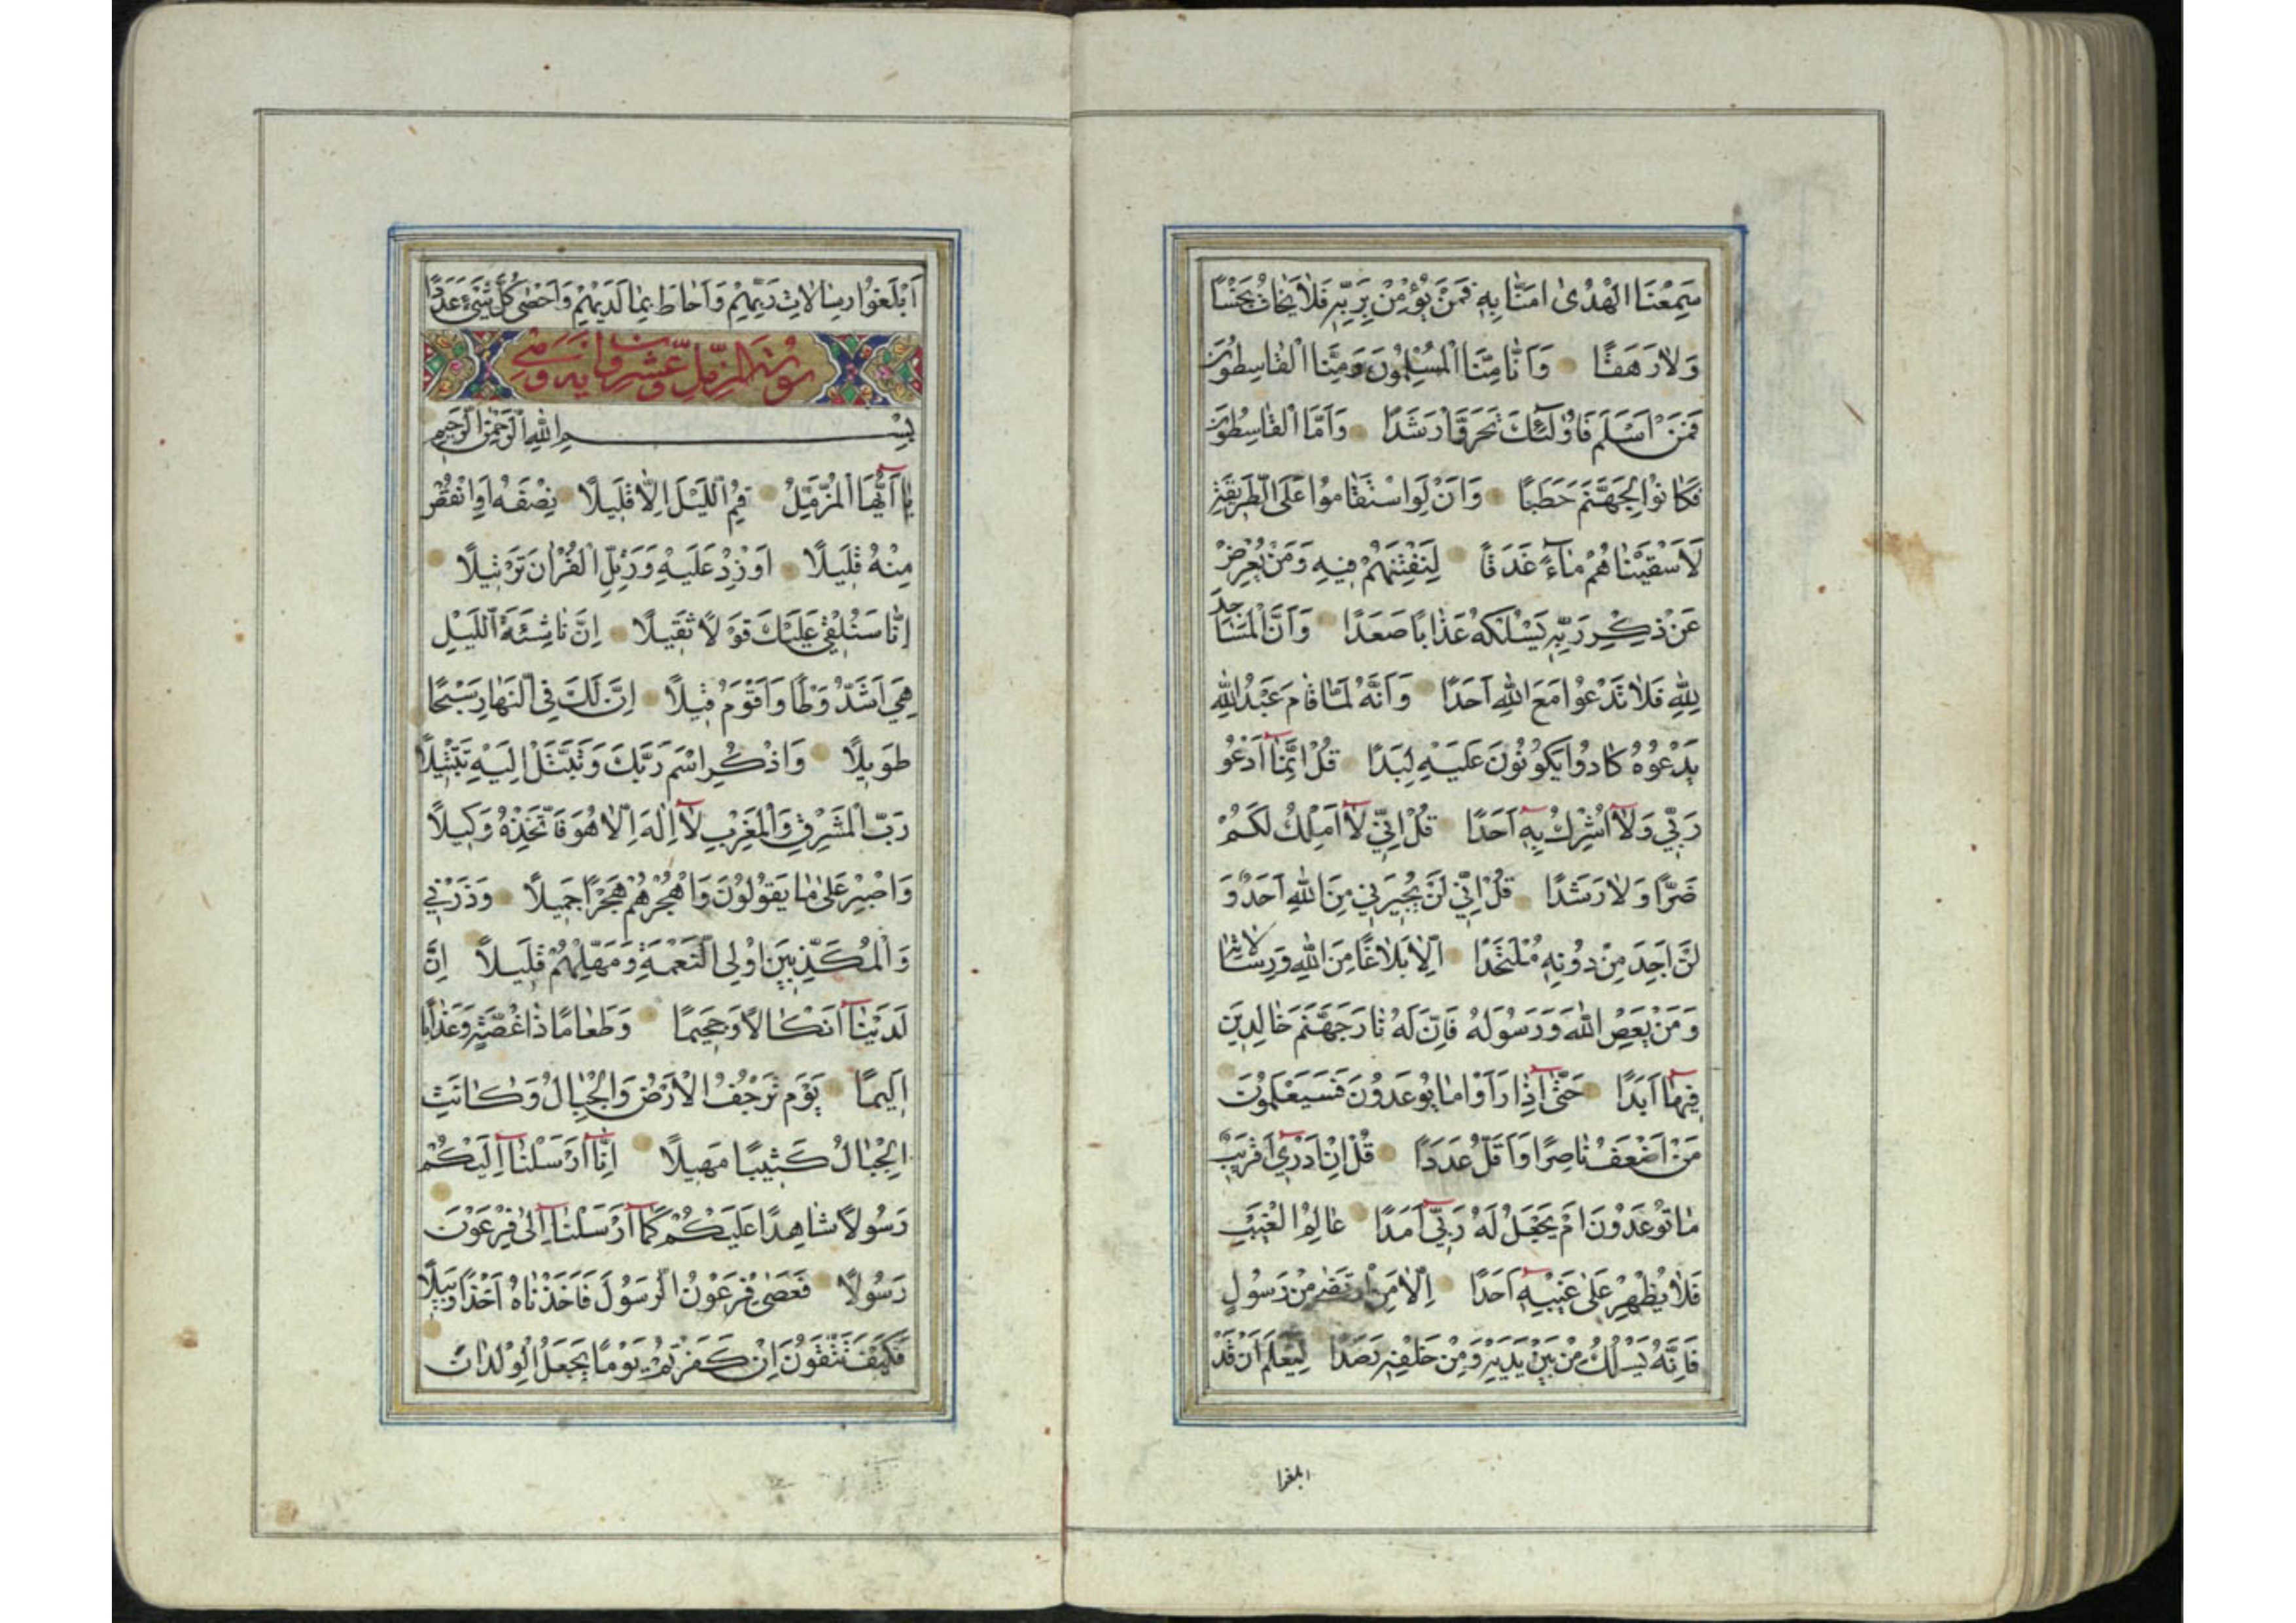 سَمِعْنَا الْهُدىٰ امَنَّا بِهٖ فَمَنْ يُؤْمِنْ بِرَبِّهٖ فَلَا يَخَافُ بَخْسًا
وَلَا رَهَقًا وَاَنَّا مِنَّا الْمُسْلِمُونَ وَمِنَّا الْقَاسِطُونَ
فَمَنْ اَسْلَمَ فَاُولٰٓئِكَ تَحَرَّوْا رَشَدًا وَاَمَّا الْقَاسِطُونَ
فَكَانُوا لِجَهَنَّمَ حَطَبًا وَاَنْ لَوِ اسْتَقَامُوا عَلَى الطَّرِيقَةِ
لَاَسْقَيْنَاهُمْ مَاءً غَدَقًا لِنَفْتِنَهُمْ فِيهِ وَمَنْ يُعْرِضْ
عَنْ ذِكْرِ رَبِّهٖ يَسْلُكْهُ عَذَابًا صَعَدًا وَاَنَّ الْمَسَاجِدَ
لِلّٰهِ فَلَا تَدْعُوا مَعَ اللّٰهِ اَحَدًا وَاَنَّهُ لَمَّا قَامَ عَبْدُ اللّٰهِ
يَدْعُوهُ كَادُوا يَكُونُونَ عَلَيْهِ لِبَدًا قُلْ اِنَّمَا اَدْعُو
رَبِّي وَلَا اُشْرِكُ بِهٖ اَحَدًا قُلْ اِنِّي لَا اَمْلِكُ لَكُمْ
ضَرًّا وَلَا رَشَدًا قُلْ اِنِّي لَنْ يُجِيرَنِي مِنَ اللّٰهِ اَحَدٌ وَ
لَنْ اَجِدَ مِنْ دُونِهٖ مُلْتَحَدًا اِلَّا بَلَاغًا مِنَ اللّٰهِ وَرِسَالَاتِهٖ
وَمَنْ يَعْصِ اللّٰهَ وَرَسُولَهُ فَاِنَّ لَهُ نَارَ جَهَنَّمَ خَالِدِينَ
فِيهَا اَبَدًا حَتّٰى اِذَا رَاَوْا مَا يُوعَدُونَ فَسَيَعْلَمُونَ
مَنْ اَضْعَفُ نَاصِرًا وَاَقَلُّ عَدَدًا قُلْ اِنْ اَدْرِي اَقَرِيبٌ
مَا تُوعَدُونَ اَمْ يَجْعَلُ لَهُ رَبِّي اَمَدًا عَالِمُ الْغَيْبِ
فَلَا يُظْهِرُ عَلٰى غَيْبِهٖ اَحَدًا اِلَّا مَنِ ارْتَضٰى مِنْ رَسُولٍ
فَاِنَّهُ يَسْلُكُ مِنْ بَيْنِ يَدَيْهِ وَمِنْ خَلْفِهٖ رَصَدًا لِيَعْلَمَ اَنْ قَدْ
اَبْلَغُوا رِسَالَاتِ رَبِّهِمْ وَاَحَاطَ بِمَا لَدَيْهِمْ وَاَحْصٰى كُلَّ شَيْءٍ عَدَدًا
سورة المزمل
بِسْمِ اللّٰهِ الرَّحْمٰنِ الرَّحِيمِ
يَا اَيُّهَا الْمُزَّمِّلُ قُمِ اللَّيْلَ اِلَّا قَلِيلًا نِصْفَهُ اَوِ انْقُصْ
مِنْهُ قَلِيلًا اَوْ زِدْ عَلَيْهِ وَرَتِّلِ الْقُرْانَ تَرْتِيلًا
اِنَّا سَنُلْقِي عَلَيْكَ قَوْلًا ثَقِيلًا اِنَّ نَاشِئَةَ اللَّيْلِ
هِيَ اَشَدُّ وَطْأً وَاَقْوَمُ قِيلًا اِنَّ لَكَ فِي النَّهَارِ سَبْحًا
طَوِيلًا وَاذْكُرِ اسْمَ رَبِّكَ وَتَبَتَّلْ اِلَيْهِ تَبْتِيلًا
رَبُّ الْمَشْرِقِ وَالْمَغْرِبِ لَا اِلٰهَ اِلَّا هُوَ فَاتَّخِذْهُ وَكِيلًا
وَاصْبِرْ عَلٰى مَا يَقُولُونَ وَاهْجُرْهُمْ هَجْرًا جَمِيلًا وَذَرْنِي
وَالْمُكَذِّبِينَ اُولِي النَّعْمَةِ وَمَهِّلْهُمْ قَلِيلًا اِنَّ
لَدَيْنَا اَنْكَالًا وَجَحِيمًا وَطَعَامًا ذَا غُصَّةٍ وَعَذَابًا
اَلِيمًا يَوْمَ تَرْجُفُ الْاَرْضُ وَالْجِبَالُ وَكَانَتِ
الْجِبَالُ كَثِيبًا مَهِيلًا اِنَّا اَرْسَلْنَا اِلَيْكُمْ
رَسُولًا شَاهِدًا عَلَيْكُمْ كَمَا اَرْسَلْنَا اِلٰى فِرْعَوْنَ
رَسُولًا فَعَصٰى فِرْعَوْنُ الرَّسُولَ فَاَخَذْنَاهُ اَخْذًا وَبِيلًا
فَكَيْفَ تَتَّقُونَ اِنْ كَفَرْتُمْ يَوْمًا يَجْعَلُ الْوِلْدَانَ